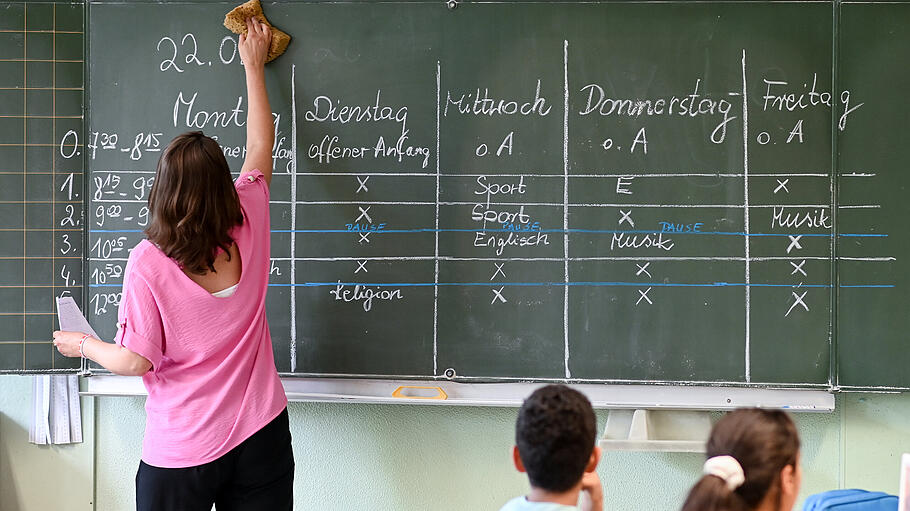 22.0
Mont Dienstag Mittwoch Donnerstag Freitag g
0. 7³⁰ - 8¹⁵ offener Anfang o. A o. A o. A
1. 8¹⁵ x Sport E x
2. 9⁰⁰ - 9 x Sport x Musik
PAUSE PAUSE PAUSE
3. 10⁰⁵ x Englisch Musik x
4. 10⁵⁰ x x x x
12⁰⁰ Religion x x x